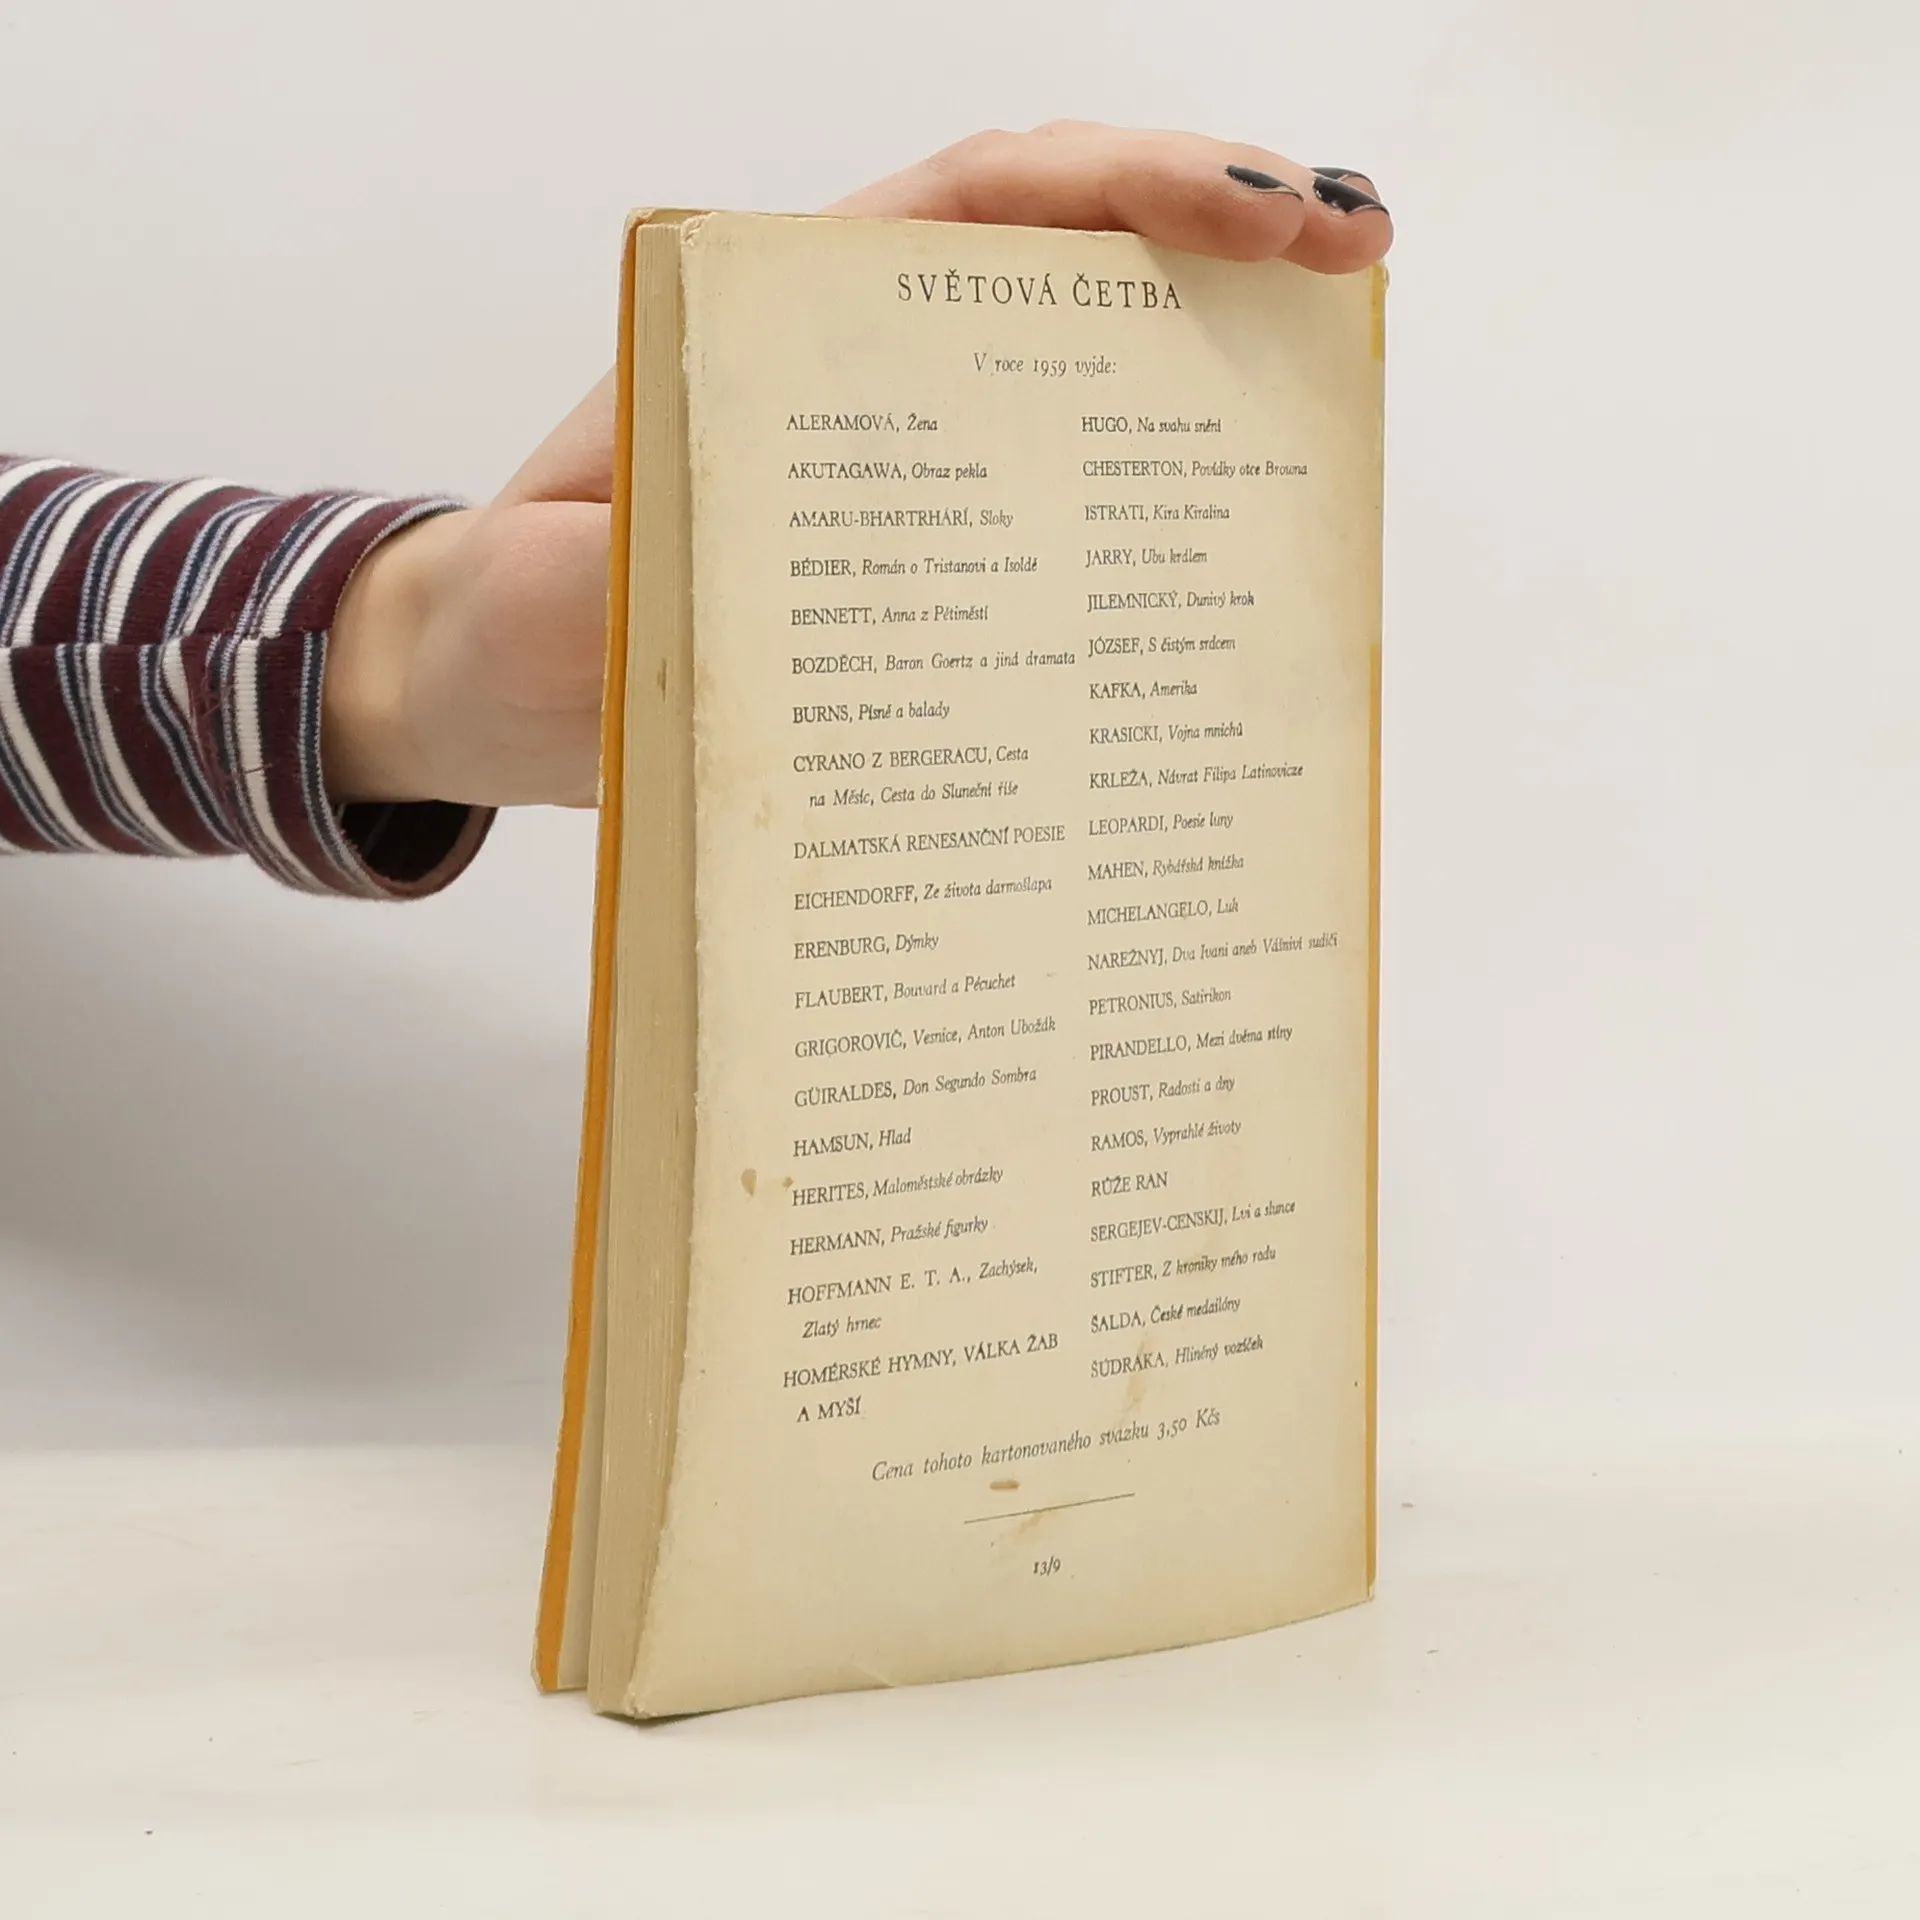 SVĚTOVÁ ČETBA
V roce 1959 vyjde:
ALERAMOVÁ, Žena
AKUTAGAWA, Obraz pekla
AMARU-BHARTRHÁRÍ, Sloky
BÉDIER, Román o Tristanovi a Isoldě
BENNETT, Anna z Pětiměstí
BOZDĚCH, Baron Goertz a jiná dramata
BURNS, Písně a balady
CYRANO Z BERGERACU, Cesta
na Měsíc, Cesta do Sluneční říše
DALMATSKÁ RENESANČNÍ POESIE
EICHENDORFF, Ze života darmošlapa
ERENBURG, Dýmky
FLAUBERT, Bouvard a Pécuchet
GRIGOROVIČ, Vesnice, Anton Ubožák
GÜIRALDES, Don Segundo Sombra
HAMSUN, Hlad
HERITES, Maloměstské obrázky
HERMANN, Pražské figurky
HOFFMANN E. T. A., Zachýsek,
Zlatý hrnec
HOMÉRSKÉ HYMNY, VÁLKA ŽAB
A MYŠÍ
HUGO, Na svahu snění
CHESTERTON, Povídky otce Browna
ISTRATI, Kira Kiralina
JARRY, Ubu králem
JILEMNICKÝ, Dunivý krok
JÓZSEF, S čistým srdcem
KAFKA, Amerika
KRASICKI, Vojna mnichů
KRLEŽA, Návrat Filipa Latinovicze
LEOPARDI, Poesie luny
MAHEN, Rybářská knížka
MICHELANGELO, Luk
NAREŽNYJ, Dva Ivani aneb Vášniví sudiči
PETRONIUS, Satirikon
PIRANDELLO, Mezi dvěma stíny
PROUST, Radosti a dny
RAMOS, Vyprahlé životy
RŮŽE RAN
SERGEJEV-CENSKIJ, Lvi a slunce
STIFTER, Z kroniky mého rodu
ŠALDA, České medailóny
ŠÚDRAKA, Hliněný vozíček
Cena tohoto kartonovaného svazku 3,50 Kčs
13/9